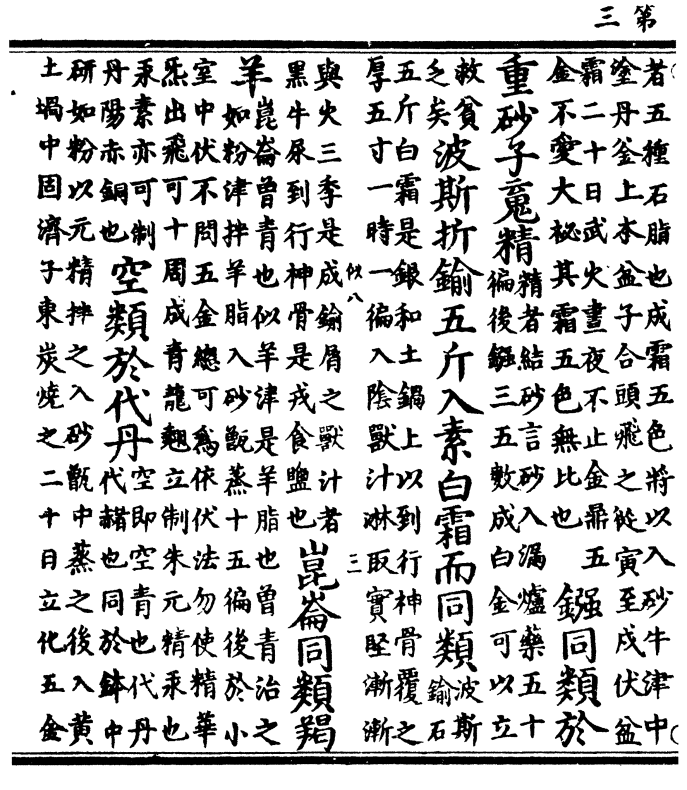 第三
者五種石脂也成霜五色將以入砂牛津中
塗丹釜上本盆子合頭飛之從寅至戍伏盆
霜二十日武火晝夜不止金鼎五
金不變大祕其霜五色無比也
鏹同類於
重砂子䰟精
精者結砂言砂入漏爐藥五十
徧後鏹三五數成白金可以立
救貧
乏矣
波斯折鍮五斤入素白霜而同類
波斯
鍮石
五斤白霜是銀和土鍋上以到行神骨覆之
厚五寸一時一徧入陰獸汁淋取實堅漸漸
似八
三一
與火三季是成鍮屑之獸汁者
黑牛尿到行神骨是戎食鹽也
崑崙同類羯
羊
崑崙曾青也似羊津是羊脂也曾青治之
如粉津拌羊脂入砂甑蒸十五徧後於小
室中伏不問五金總可爲依伏法勿使精華
炁出飛可十周成青龍翹立制朱元精汞也
汞素亦可制
丹陽赤銅也
空類於代丹
空即空青也代丹
代赭也同於鉢中
研如粉以元精拌之入砂甑中蒸之後入黃
土堝中固濟子東炭燒之二十日立化五金